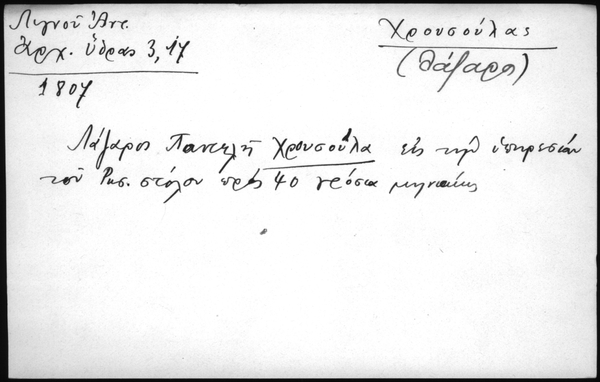 Λιγνοῦ Ἀντ.
Ἀρχ. Ὕδρας 3, 17
1807
Χρουσούλας
(Λάζαρος)
Λάζαρος Παντελῆ Χρουσούλα εἰς τὴν ὑπηρεσίαν
τοῦ Ρωσ. στόλου πρὸς 40 γρόσια μηνιαίως